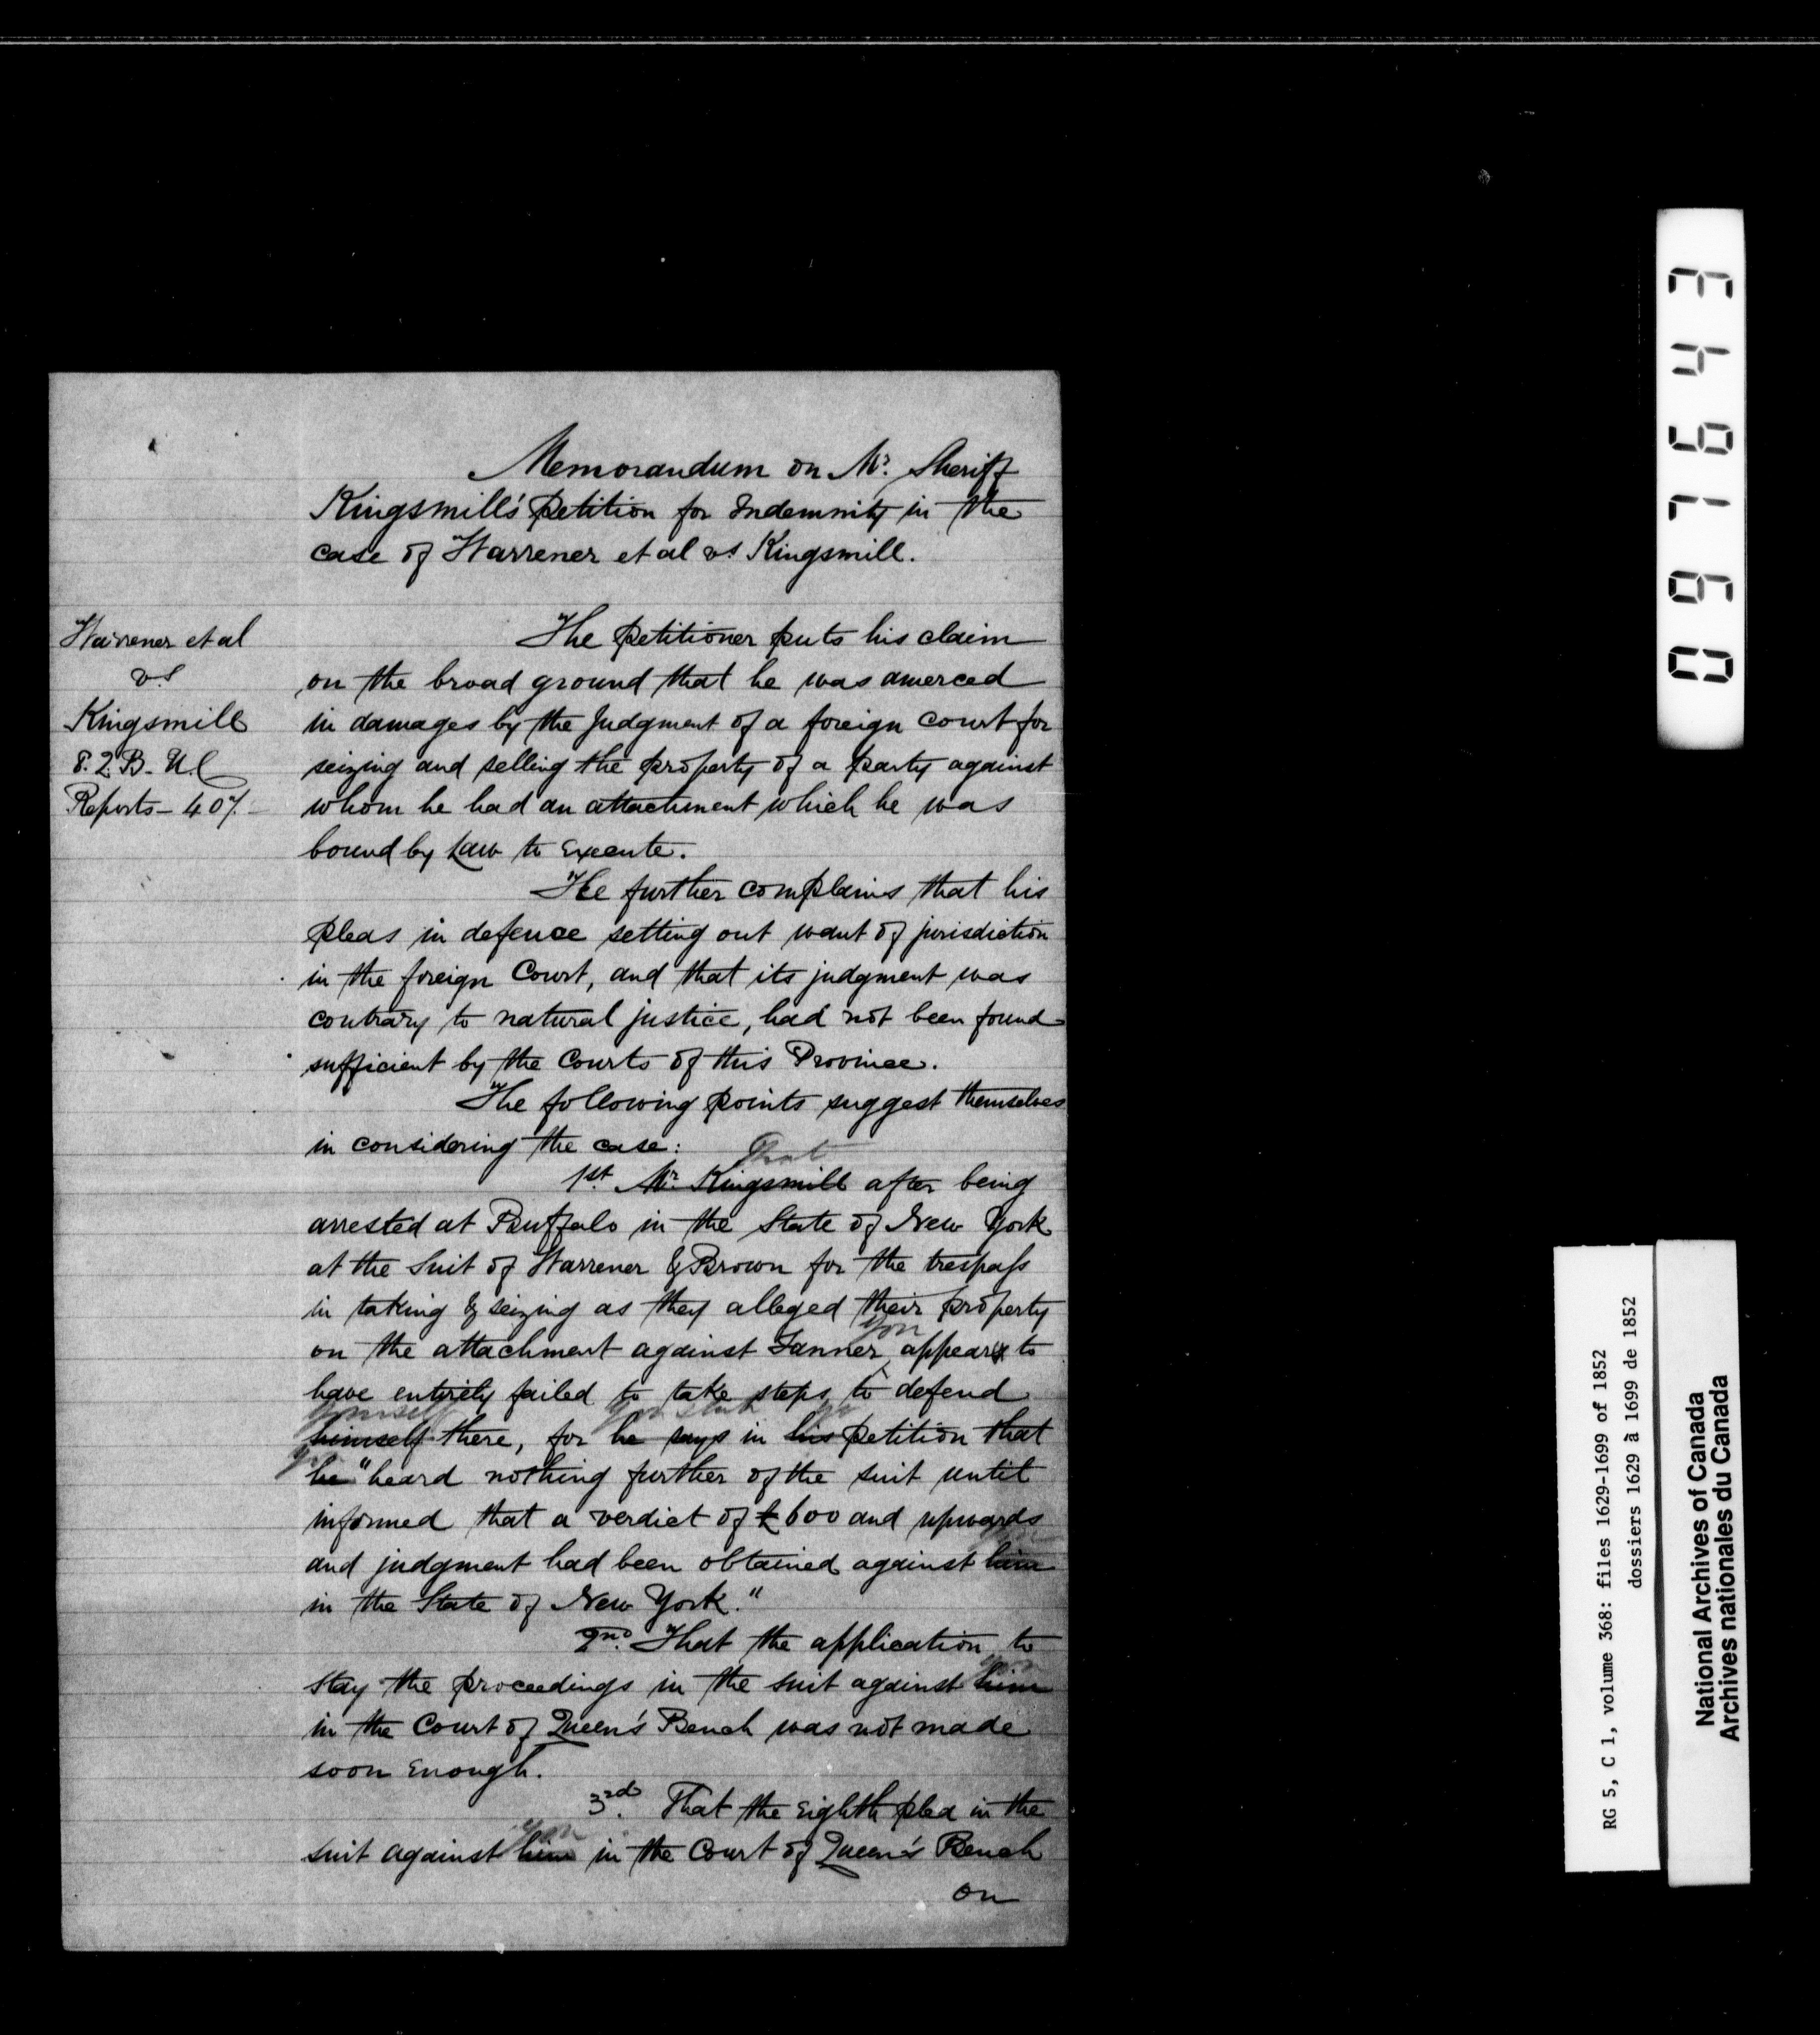 Memorandum on Mr. Sheriff
Kingsmill's petition for Indemnity in the
case of Warrener et al vs Kingsmill.
Warrener et al
vs
Kingsmill
8. Q. B. U. C
Reports - 407.
The petitioner puts his claim
on the broad ground that he was amerced
in damages by the Judgment of a foreign court for
seizing and selling the property of a party against
whom he had an attachment which he was
bound by Law to execute.
He further complains that his
pleas in defence setting out want of jurisdiction
in the foreign Court, and that its judgment was
contrary to natural justice, had not been found
sufficient by the Courts of this Province.
The following points suggest themselves
in considering the case:
That
1st. Mr. Kingsmill after being
arrested at Buffalo in the State of New York
at the Suit of Warrener & Brown for the trespass
in taking & seizing as they alleged their property
you
on the attachment against Tanner appears to
have entirely failed to take steps to defend
yourself you state your
himself there, for he says in his petition that
you
he "heard nothing further of the suit until
informed that a verdict of £600 and upwards
and judgment had been obtained against him
in the State of New York."
2nd. That the application to
you
stay the proceedings in the suit against him
in the Court of Queen's Bench was not made
soon enough.
3rd. That the eighth plea in the
you
suit against him in the Court of Queen's Bench
on
097643
RG 5, C 1, volume 368: files 1629-1699 of 1852
dossiers 1629 à 1699 de 1852
National Archives of Canada
Archives nationales du Canada